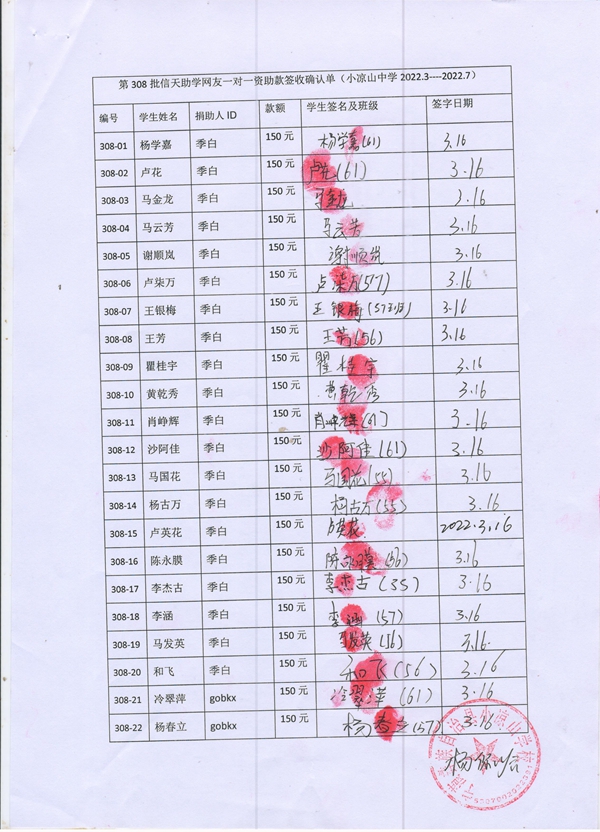 第 308 批信天助学网友一对一资助款签收确认单（小凉山中学 2022.3----2022.7）
编号 学生姓名 捐助人 ID 款额 学生签名及班级 签字日期
308-01 杨学嘉 季白 150 元 杨学嘉(61) 3.16
308-02 卢花 季白 150 元 卢花(61) 3.16
308-03 马金龙 季白 150 元 马金龙 3.16
308-04 马云芳 季白 150 元 马云芳 3.16
308-05 谢顺岚 季白 150 元 谢顺岚 3.16
308-06 卢柒万 季白 150 元 卢柒万(57) 3.16
308-07 王银梅 季白 150 元 王银梅(57班) 3.16
308-08 王芳 季白 150 元 王芳(56) 3.16
308-09 瞿桂宇 季白 150 元 瞿桂宇 3.16
308-10 黄乾秀 季白 150 元 黄乾秀 3.16
308-11 肖峥辉 季白 150 元 肖峥辉(61) 3.16
308-12 沙阿佳 季白 150 元 沙阿佳(61) 3.16
308-13 马国花 季白 150 元 马国花(55) 3.16
308-14 杨古万 季白 150 元 杨古万(55) 3.16
308-15 卢英花 季白 150 元 卢英花 2022.3.16
308-16 陈永膜 季白 150 元 陈永膜(56) 3.16
308-17 李杰古 季白 150 元 李杰古(55) 3.16
308-18 李涵 季白 150 元 李涵(57) 3.16
308-19 马发英 季白 150 元 马发英(56) 3.16
308-20 和飞 季白 150 元 和飞(56) 3.16
308-21 冷翠萍 gobkx 150 元 冷翠萍(61) 3.16
308-22 杨春立 gobkx 150 元 杨春立(57) 3.16